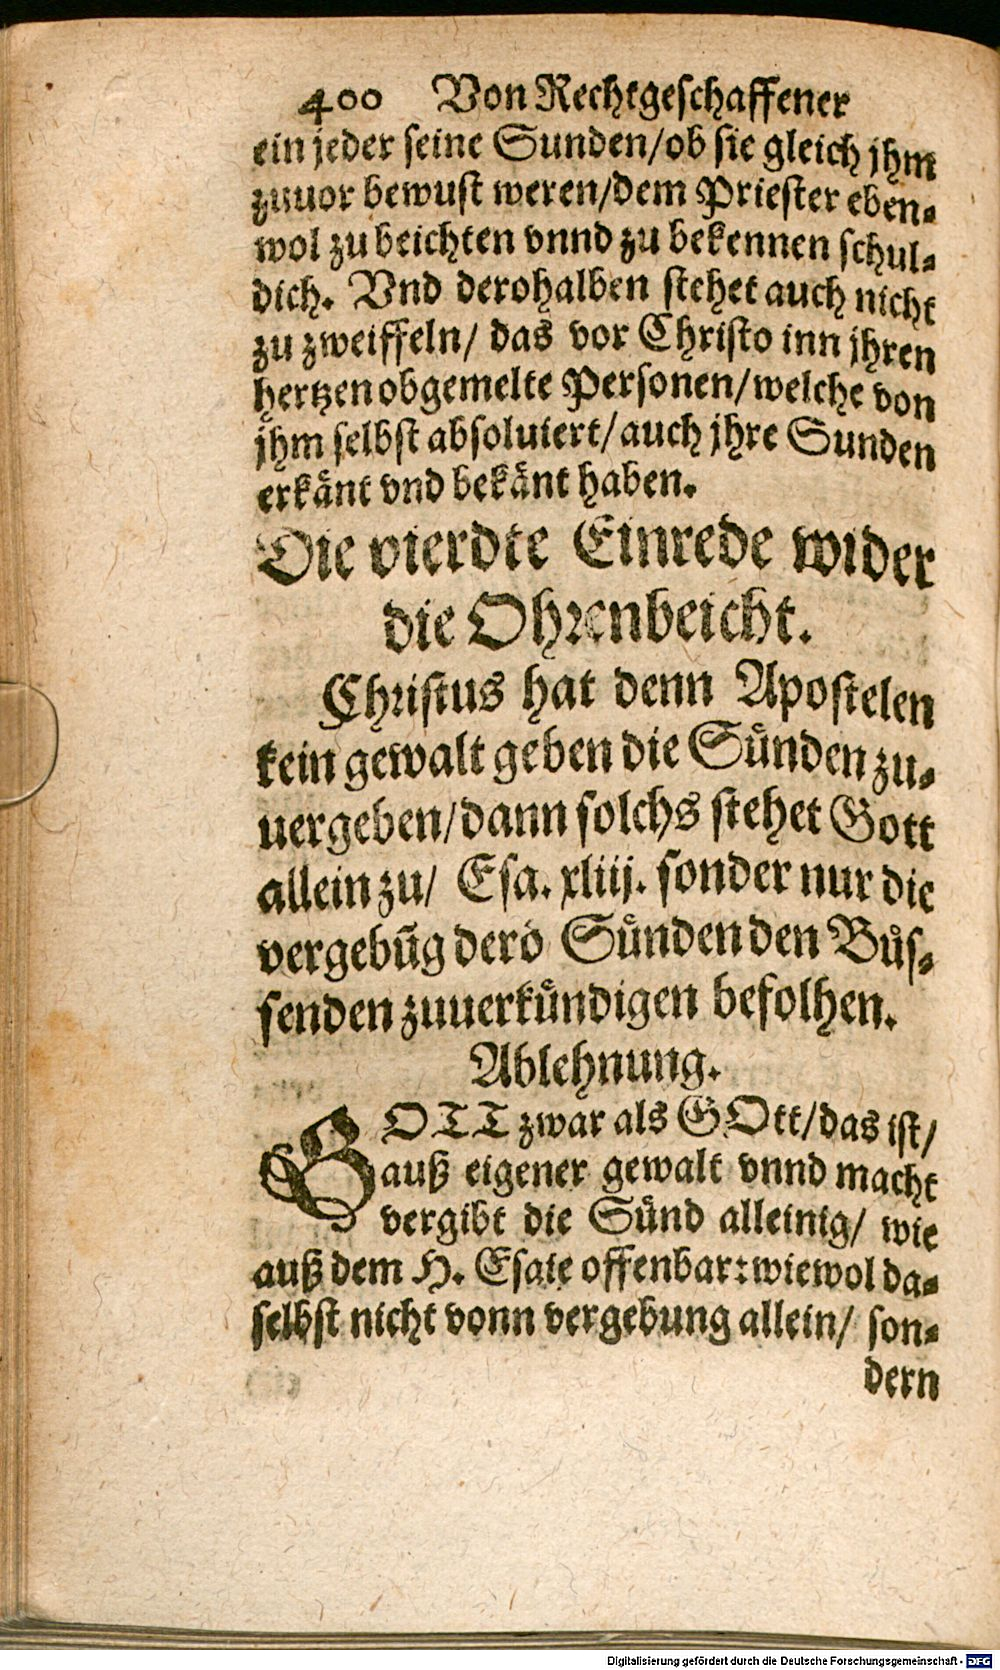 400 Von Rechtgeschaffener
ein jeder seine Sunden/ob sie gleich jhm
zuuor bewust weren/dem Priester eben-
wol zu beichten vnnd zu bekennen schul-
dich. Vnd derohalben stehet auch nicht
zu zweiffeln/ das vor Christo inn jhren
hertzen obgemelte Personen/welche von
jhm selbst absoluiert/auch jhre Sunden
erkånt vnd bekånt haben.
Die vierdte Einrede wider
die Ohrenbeicht.
Christus hat denn Apostelen
kein gewalt geben die Sůnden zu-
uergeben/dann solchs stehet Gott
allein zu/ Esa. xliij. sonder nur die
vergebũg derö Sůnden den Bůs-
senden zuuerkůndigen befolhen.
Ablehnung.
GOTT zwar als GOtt/das ist/
auß eigener gewalt vnnd macht
vergibt die Sůnd alleinig/ wie
auß dem H. Esaie offenbar: wiewol da-
selbst nicht vonn vergebung allein/ son-
dern
Digitalisierung gefördert durch die Deutsche Forschungsgemeinschaft - DFG